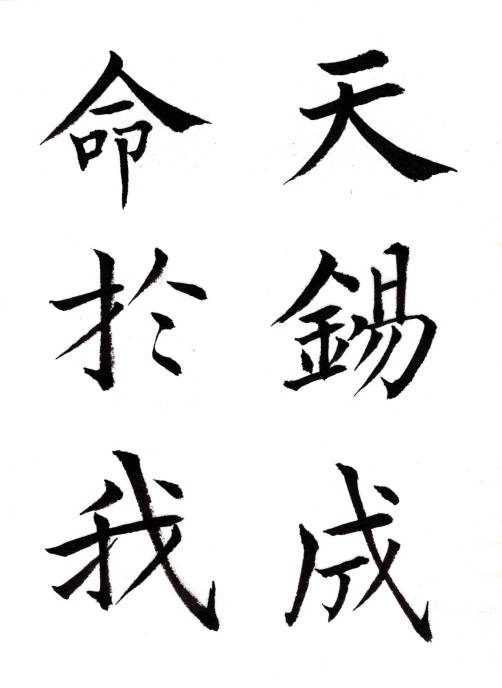 天錫成
命扵我